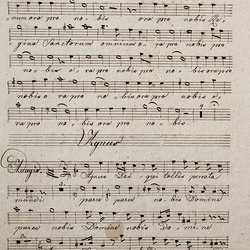 num ora pro no - bis ora pro nobis Re
gina Sanctorum omnium o - ra pro nobis pro
no - bis o - ra pro nobis pro no - bis ora pro
nobis o ra pro no - bis ora pro nobis o
ra pro no - bis ora pro no - bis
Agnus
Adagio Agnus Dei qui tollis peccata
mundi parce parce no - bis Domine
parce nobis Domine nobis Do - mi - ne